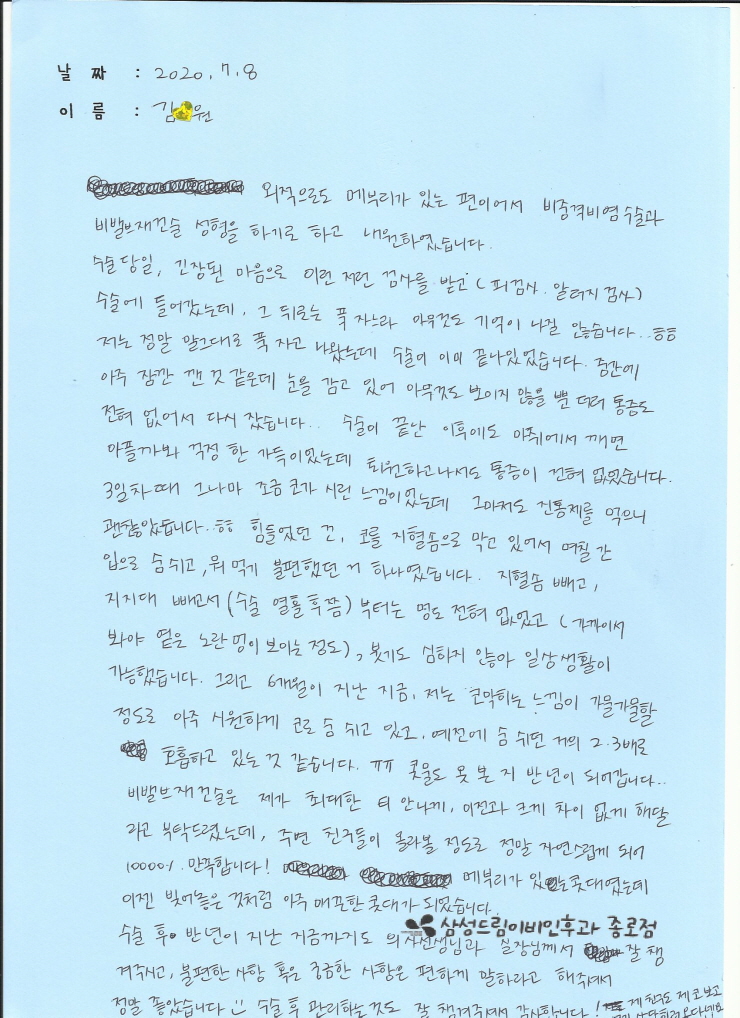 날 짜 : 2020. 7. 8
이 름 : 김 원
외적으로도 메부리가 있는 편이어서 비중격비염수술과
비밸브재건술 성형을 하기로 하고 내원하였습니다.
수술 당일, 긴장된 마음으로 이런 저런 검사를 받고 (피검사. 알러지 검사)
수술에 들어갔는데, 그 뒤로는 푹 자느라 아무것도 기억이 나질 않습니다..ㅎㅎ
저는 정말 말그대로 푹 자고 나왔는데 수술이 이미 끝나있었습니다. 중간에
아주 잠깐 깬 것 같은데 눈을 감고 있어 아무것도 보이지 않을 뿐 더러 통증도
전혀 없어서 다시 잤습니다.. 수술이 끝난 이후에도 마취에서 깨면
아플까봐 걱정 한 가득이었는데 퇴원하고나서도 통증이 전혀 없었습니다.
3일차때 그나마 조금 코가 시린 느낌이었는데 그마저도 진통제를 먹으니
괜찮았습니다..ㅎㅎ 힘들었던 건, 코를 지혈솜으로 막고 있어서 며칠 간
입으로 숨쉬고, 뭐 먹기 불편했던 거 하나였습니다. 지혈솜 빼고,
지지대 빼고서 (수술 열흘 후쯤) 부터는 멍도 전혀 없었고 (가까이서
봐야 옅은 노란 멍이 보이는 정도), 붓기도 심하지 않아 일상생활이
가능했습니다. 그리고 6개월이 지난 지금, 저는 코막히는 느낌이 가물가물할
정도로 아주 시원하게 코로 숨 쉬고 있고, 예전에 숨 쉬던 거의 2.3배로
호흡하고 있는 것 같습니다. ㅠㅠ 콧물도 못 본 지 반 년이 되어갑니다..
비밸브재건술은 제가 최대한 티 안나게, 이전과 크게 차이 없게 해달
라고 부탁드렸는데, 주변 친구들이 몰라볼 정도로 정말 자연스럽게 되어
10000% 만족합니다! 메부리가 있는 콧대였는데
이젠 빚어놓은 것처럼 아주 매끈한 콧대가 되었습니다.
삼성드림이비인후과 종로점
수술 후 반년이 지난 지금까지도 의사선생님과 실장님께서 잘 챙
겨주시고, 불편한 사항 혹은 궁금한 사항은 편하게 말하라고 해주셔서
정말 좋았습니다 수술 후 관리하는것도 잘 챙겨주셔서 감사합니다! 제 친구도 제 코 보고